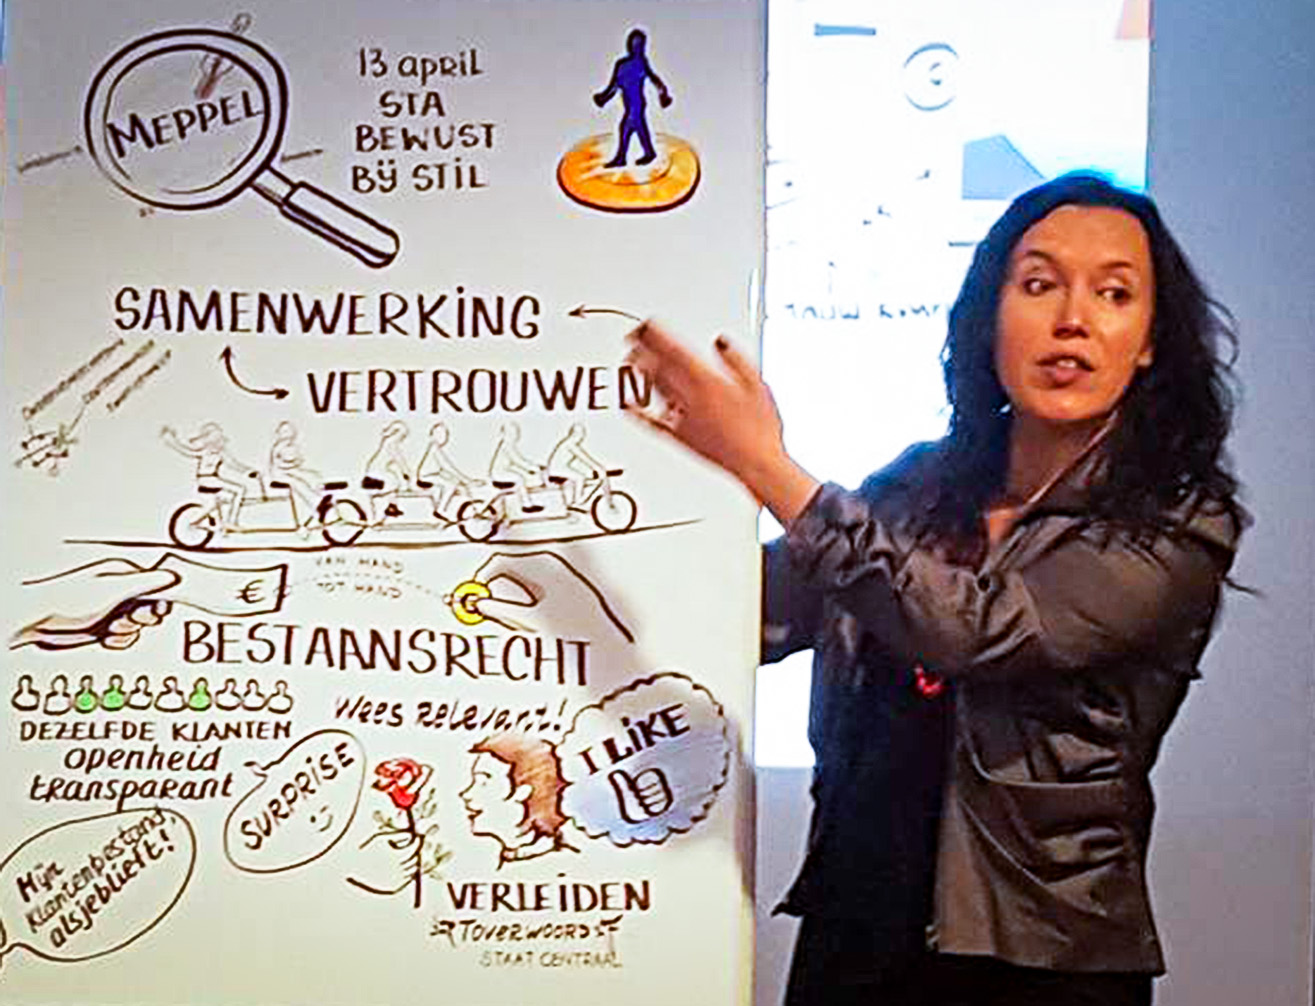 MEPPEL
13 april
STA
BEWUST
BIJ STIL
SAMENWERKING
VERTROUWEN
VAN HAND
TOT HAND
€
BESTAANSRECHT
DEZELFDE KLANTEN
openheid
transparant
Wees Relevant!
I LIKE
SURPRISE
Mijn
Klantenbestand,
alsjeblieft!
VERLEIDEN
Toverwoord
STAAT CENTRAAL